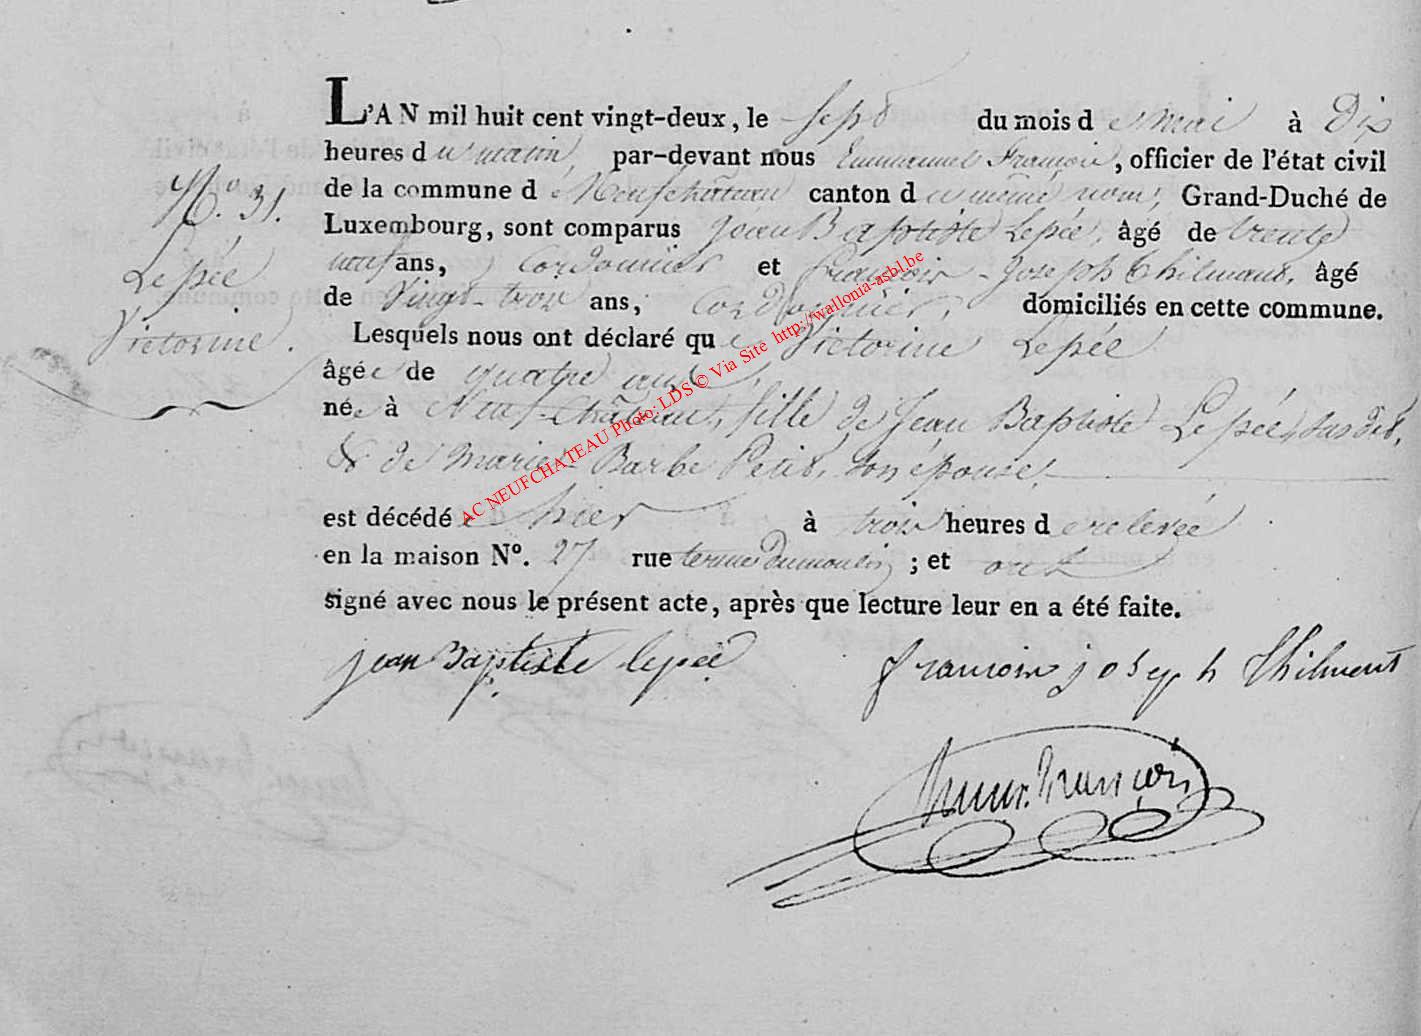 L'AN mil huit cent vingt-deux, le sept du mois de mai à Dix
heures du matin, par-devant nous Emmanuel François, officier de l'état civil
de la commune de Neufchâteau canton du même nom, Grand-Duché de
Luxembourg, sont comparus Jean Baptiste Lepée, âgé de trente
neuf ans, Cordonnier et François-Joseph Thilmant, âgé
de Vingt-trois ans, Cordonnier, domiciliés en cette commune.
Lesquels nous ont déclaré que Victorine Lepée
âgée de quatre ans,
née à Neuf-Château, fille de Jean Baptiste Lepée, susdit,
& de Marie-Barbe Petit, son épouse,
est décédée hier à trois heures de relevée
en la maison N°. 27 rue terme Dumoulin ; et ont
signé avec nous le présent acte, après que lecture leur en a été faite.
N.° 31.
Lepée
Victorine.
jean Baptiste lepeé
francoin joseph thilment
François
AC NEUFCHATEAU Photo: LDS © Via Site http://wallonia-asbl.be